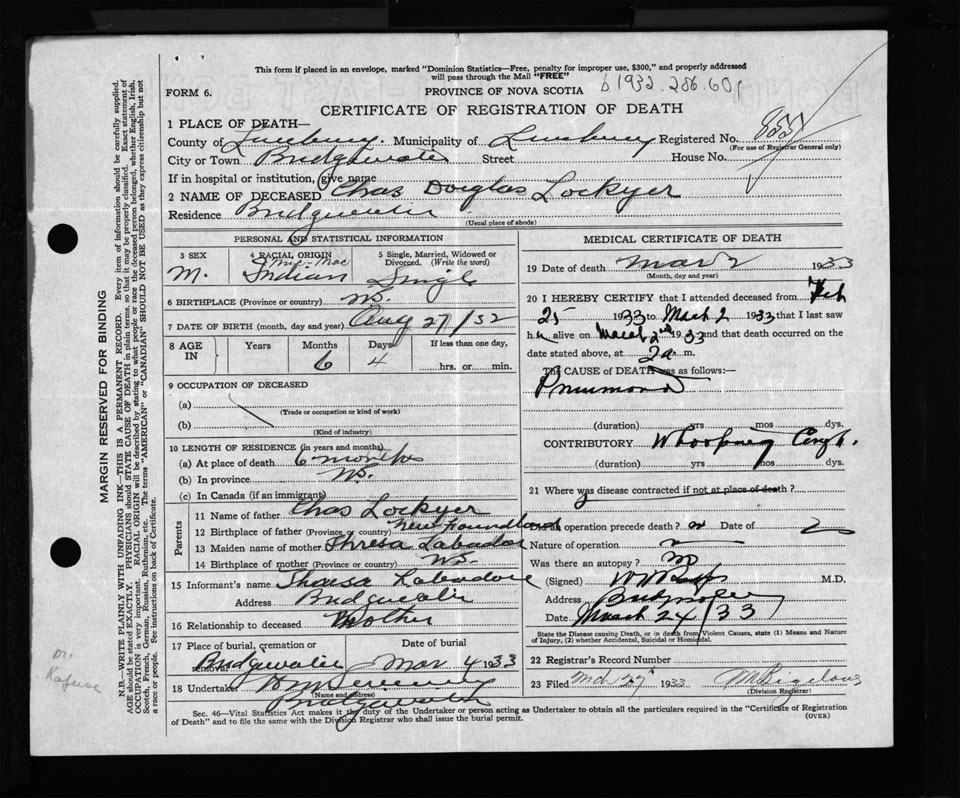 This form if placed in an envelope, marked "Dominion Statistics—Free, penalty for improper use, $300," and properly addressed
will pass through the Mail "FREE"
FORM 6.
PROVINCE OF NOVA SCOTIA b 1932.286.601
CERTIFICATE OF REGISTRATION OF DEATH
1 PLACE OF DEATH—
County of Lunenburg. Municipality of Lunenburg Registered No.
(For use of Registrar General only)
City or Town Bridgewater Street House No.
If in hospital or institution, give name
2 NAME OF DECEASED Chas Douglas Lockyer
Residence Bridgewater
(Usual place of abode)
PERSONAL AND STATISTICAL INFORMATION
3 SEX M.
4 RACIAL ORIGIN Mic-Mac Indian
5 Single, Married, Widowed or Divorced. (Write the word) Single
6 BIRTHPLACE (Province or country) N.S.
7 DATE OF BIRTH (month, day and year) Aug 27/32
8 AGE IN Years Months Days If less than one day,
6 4 hrs. or min.
9 OCCUPATION OF DECEASED
(a)
(Trade or occupation or kind of work)
(b)
(Kind of industry)
10 LENGTH OF RESIDENCE (in years and months)
(a) At place of death 6 months
(b) In province N.S.
(c) In Canada (if an immigrant)
Parents
11 Name of father Chas Lockyer
12 Birthplace of father (Province or country) New Foundland
13 Maiden name of mother Theresa Labadore
14 Birthplace of mother (Province or country) N.S.
15 Informant's name Theresa Labadore
Address Bridgewater
16 Relationship to deceased Mother
17 Place of burial, cremation or removal Date of burial
Bridgewater Mar 4 1933
18 Undertaker
(Name and address)
Bridgewater
MEDICAL CERTIFICATE OF DEATH
19 Date of death Mar 2 1933
(Month, day and year)
20 I HEREBY CERTIFY that I attended deceased from Feb
25 1933 to March 2 1933 that I last saw
h alive on March 2nd 1933 and that death occurred on
date stated above, at 2 a m.
The CAUSE of DEATH was as follows:—
Pneumonia
(duration) yrs mos dys.
CONTRIBUTORY Whooping Cough.
(duration) yrs mos dys.
21 Where was disease contracted if not at place of death?
Did operation precede death? Date of
Nature of operation
Was there an autopsy? no
(Signed) M.D.
Address Bridgewater
Date March 24/33
State the Disease causing Death, or in death from Violent Causes, state (1) Means and Nature
of Injury, (2) whether Accidental, Suicidal or Homicidal.
22 Registrar's Record Number
23 Filed Mch 27 1933
(Division Registrar)
Sec. 46—Vital Statistics Act makes it the duty of the Undertaker or person acting as Undertaker to obtain all the particulars required in the "Certificate of Registration
of Death" and to file the same with the Division Registrar who shall issue the burial permit. (OVER)
MARGIN RESERVED FOR BINDING
N.B.—WRITE PLAINLY WITH UNFADING INK—THIS IS A PERMANENT RECORD. Every item of information should be carefully supplied.
AGE should be stated EXACTLY. PHYSICIANS should STATE CAUSE OF DEATH in plain terms, so that it may be properly classified. Exact statement of
OCCUPATION is very important. RACIAL ORIGIN will be described by stating to what people or race the deceased person belonged, whether English, Irish,
Scotch, French, German, Russian, Ruthenian, etc. The terms "AMERICAN" or "CANADIAN" SHOULD NOT BE USED as they express citizenship but not
a race or people. See instructions on back of Certificate.